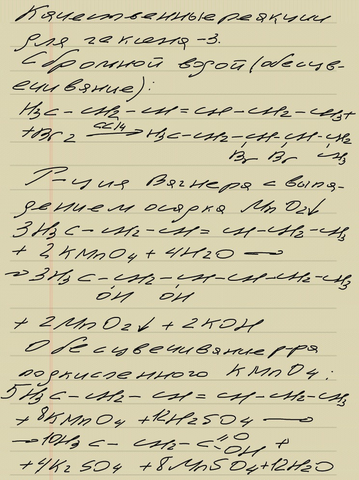 Качественные реакции
для гексена-3.
С бромной водой (обесцв-
ечивание):
H3C-CH2-CH=CH-CH2-CH3+
+Br2 CCl4→ H3C-CH2-CH-CH-CH2
Br Br CH3
Р-ция Вагнера с выпа-
дением осадка MnO2↓
3H3C-CH2-CH=CH-CH2-CH3
+ 2KMnO4 + 4H2O →
→ 3H3C-CH2-CH-CH-CH2-CH3
OH OH
+ 2MnO2↓ + 2KOH
Обесцвечивание р-ра
подкисленного KMnO4:
5H3C-CH2-CH=CH-CH2-CH3
+ 8KMnO4 + 12H2SO4 →
→ 10H3C-CH2-C=O OH +
+4K2SO4 + 8MnSO4+12H2O